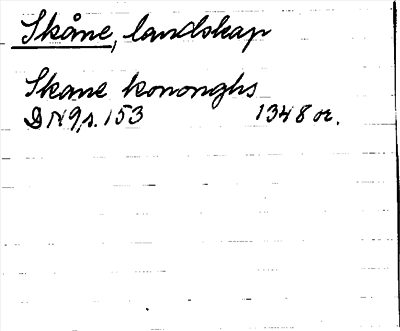 Skåne, landskap
Skane kononghs
DN 9, s. 153 1348 or.